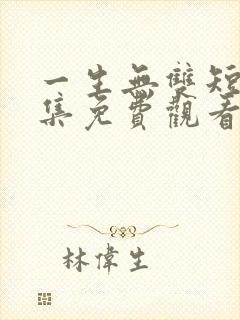 一生無雙短
集免費觀看
林偉生